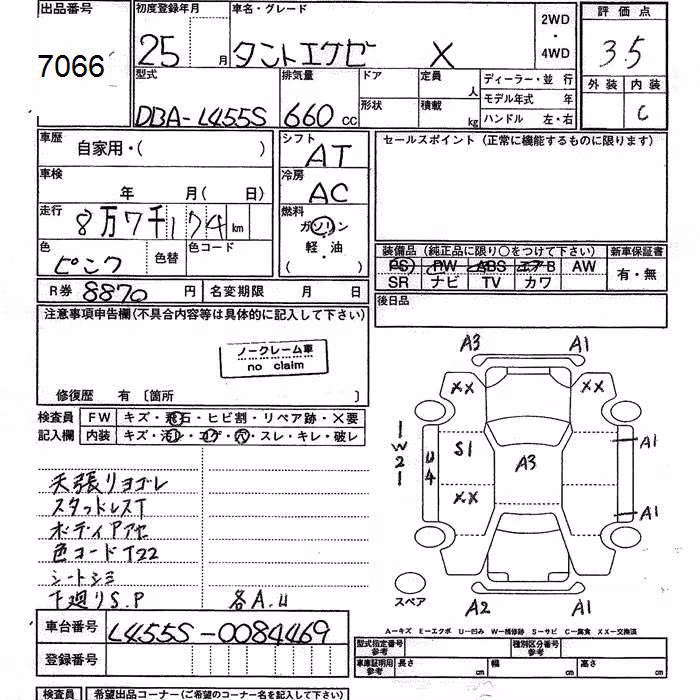 出品番号
7066
初度登録年月
25 月
車名・グレード
タントエグゼ X
2WD
・
4WD
評価点
3.5
外装 内装
C
型式
DBA-L455S
排気量
660 cc
ドア
形状
定員
人
積載
kg
ディーラー・並 行
モデル年式 年
ハンドル 左・右
車歴
自家用・( )
車検
年 月( 日)
走行
8万7千174 km
色
ピンク
色替
色コード
R券 8870 円
名変期限 月 日
シフト
AT
冷房
AC
燃料
ガソリン
軽・油
( ・ )
セールスポイント(正常に機能するものに限ります)
装備品(純正品に限り○をつけて下さい)
PS PW ABS エアB AW
SR ナビ TV カワ
新車保証書
有・無
後日品
注意事項申告欄(不具合内容等は具体的に記入して下さい)
ノークレーム車
no claim
修復歴 有 〔箇所 〕
検査員
記入欄
FW キズ・飛石・ヒビ割・リペア跡・×要
内装 キズ・汚レ・コゲ・穴・スレ・キレ・破レ
天張リヨゴレ
スタッドレスT
ボディアアセ
色コードT22
シートシミ
下廻りS.P 各A.U
A3 A1
XX XX
S1
A3
A1
W2
U4
XX
A1
A2 A1
スペア
車台番号 L455S-0084469
登録番号
A-キズ E-エクボ U-凹み W-補修跡 S-サビ C-腐食 XX-交換済
型式指定番号
参考
種別区分番号
参考
車庫証明用
参考
長さ cm
幅 cm
高さ cm
検査員
希望出品コーナー(ご希望のコーナー名を記入して下さい)